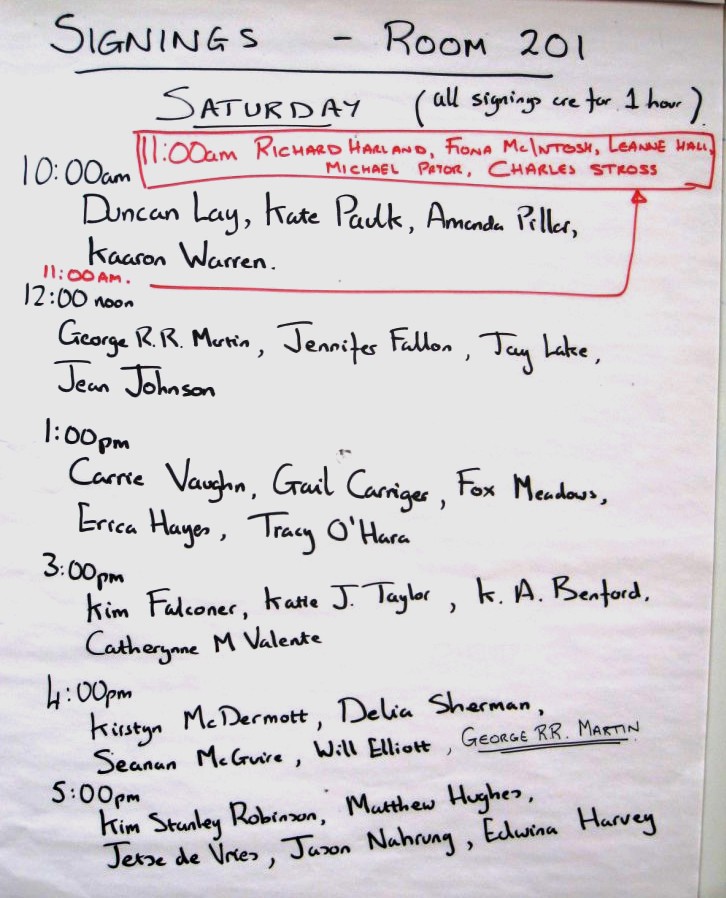 SIGNINGS - ROOM 201
SATURDAY (all signings are for 1 hour)
11:00am RICHARD HARLAND, FIONA McINTOSH, LEANNE HALL,
MICHAEL PRYOR, CHARLES STROSS
10:00am
Duncan Lay, Kate Paulk, Amanda Pillar,
Kaaron Warren.
11:00AM.
12:00 noon
George R.R. Martin, Jennifer Fallon, Jay Lake,
Jean Johnson
1:00pm
Carrie Vaughn, Gail Carriger, Fox Meadows,
Erica Hayes, Tracy O'Hara
3:00pm
Kim Falconer, Katie J. Taylor, K. A. Benford.
Catherynne M Valente
4:00pm
Kirstyn McDermott, Delia Sherman,
Seanan McGuire, Will Elliott, GEORGE RR. MARTIN
5:00pm
Kim Stanley Robinson, Matthew Hughes,
Jetse de Vries, Jason Nahrung, Edwina Harvey